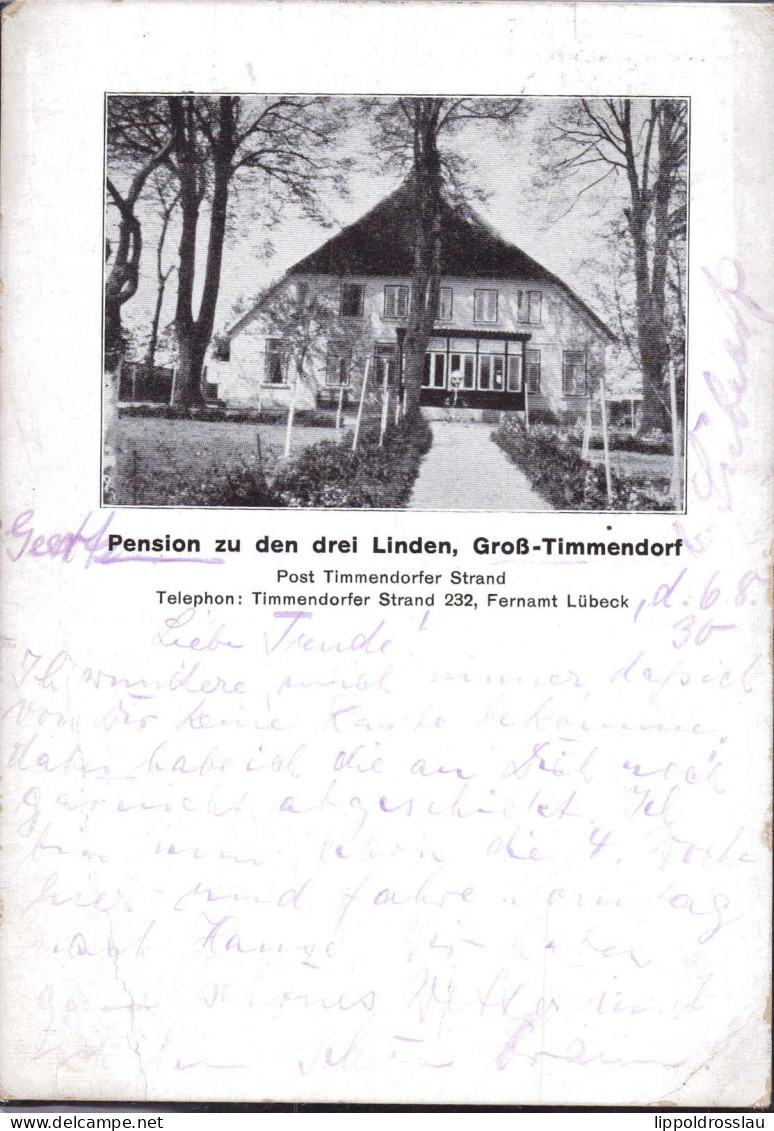 Pension zu den drei Linden, Groß-Timmendorf
Post Timmendorfer Strand
Telephon: Timmendorfer Strand 232, Fernamt Lübeck, d. 6.8.
30
Liebe Trude!
Ich wundere mich immer, daß ich
von Dir keine Karte bekomme,
dabei habe ich die an Dich noch
garnicht abgeschickt. Ich
bin nun schon die 4. Woche
hier und fahre Sonntag
nach Hause. Wir haben
ganz schönes Wetter und
ich bin schön braun
lippoldrosslau@gmx.de